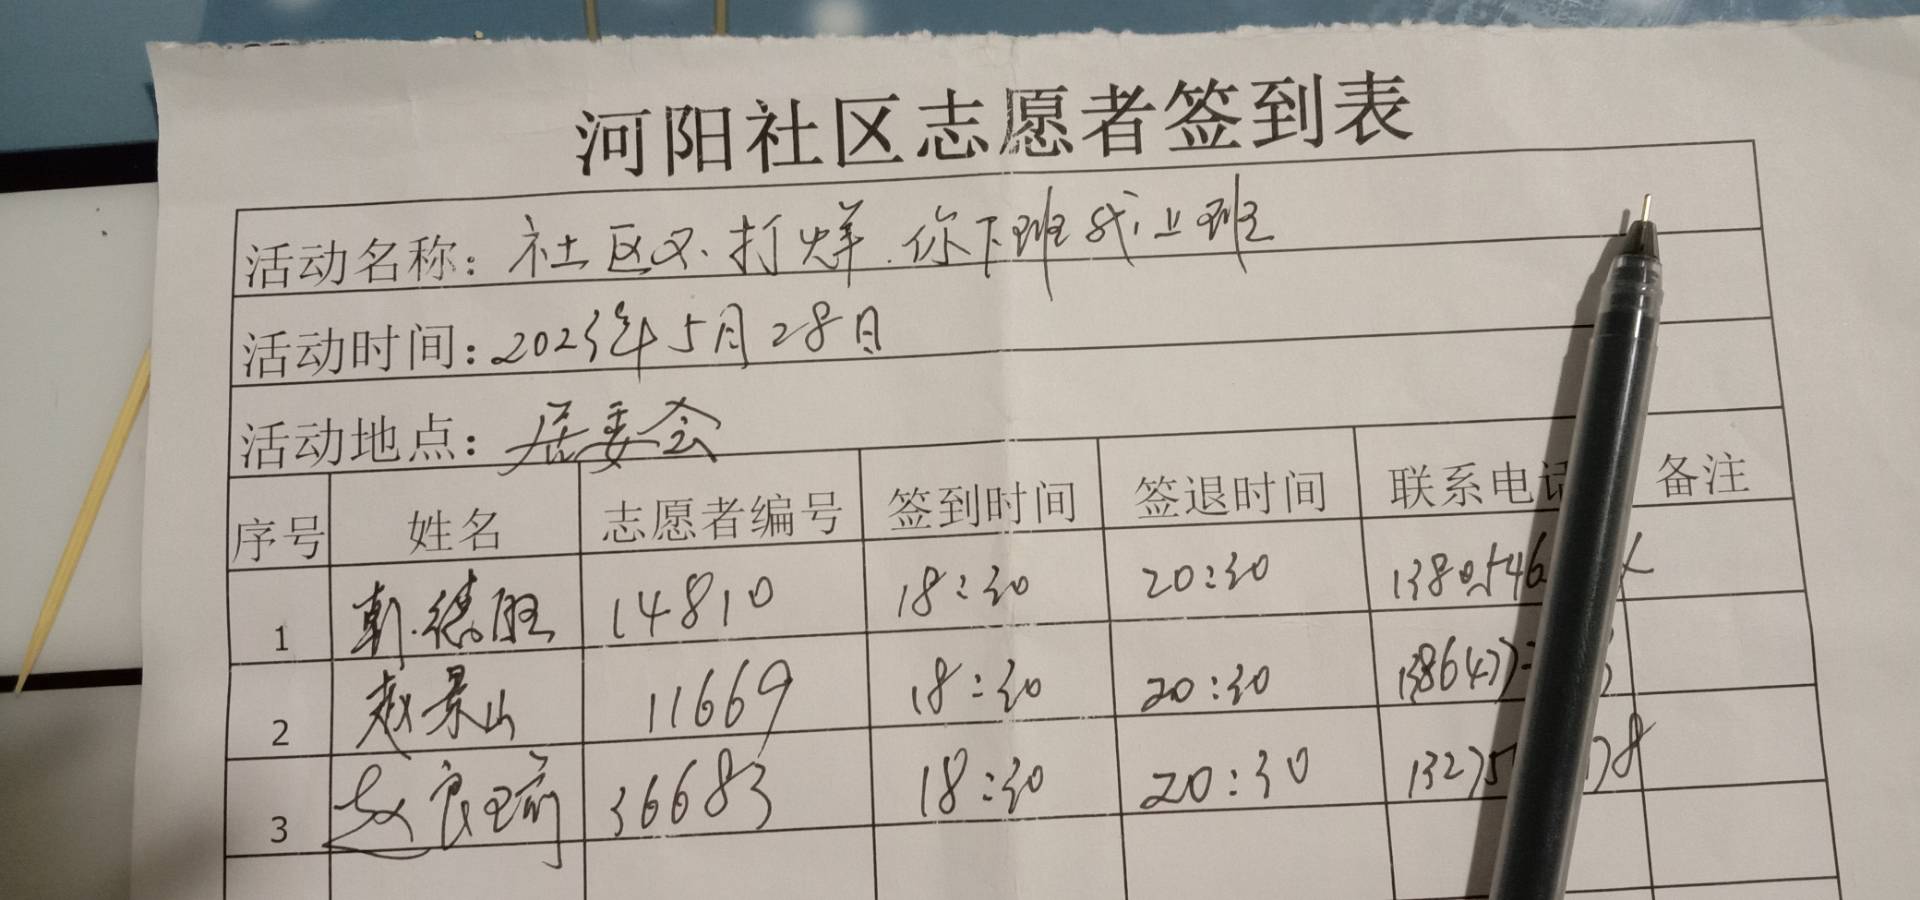 河阳社区志愿者签到表
活动名称：社区不打烊.你下班我上班
活动时间：2023年5月28日
活动地点：居委会
序号 姓名 志愿者编号 签到时间 签退时间 联系电话 备注
1 德胜 14810 18:30 20:30
2 赵景山 11669 18:30 20:30
3 赵良瑜 36683 18:30 20:30